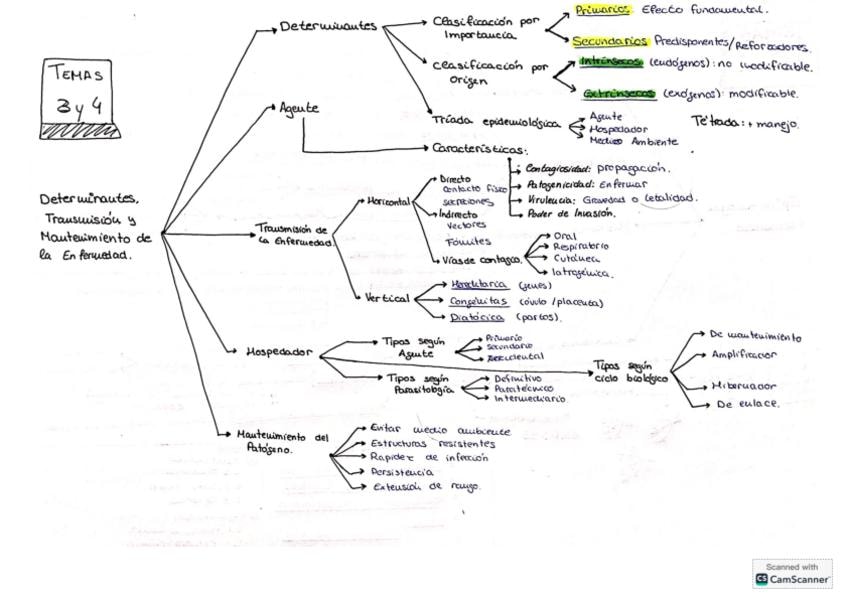 TEMAS
3 y 4
Determinantes,
Transmisión y
Mantenimiento de
la Enfermedad.
Determinantes
Clasificación por
Importancia
Primarios: Efecto fundamental.
Secundarios Predisponentes/Reforzadores.
Clasificación por
Origen
Intrínsecos (endógenos): no modificable.
Extrínsecos (exógenos): modificable.
Tríada epidemiológica
Agente
Hospedador
Medio Ambiente
Tétrada: + manejo.
Agente
Características:
Contagiosidad: propagación.
Patogenicidad: Enfermar
Virulencia: Gravedad o letalidad.
Poder de Invasión.
Transmisión de
la Enfermedad
Horizontal
Directo
contacto físico
secreciones
Indirecto
Vectores
Fómites
Vías de contagio
Oral
Respiratorio
Cutánea
Iatrogénica.
Vertical
Hereditaria (genes)
Congénitas (óvulo/placenta)
Diatócica (partos).
Hospedador
Tipos según
Agente
Primario
Secundario
Accidental
Tipos según
Parasitología
Definitivo
Paraténico
Intermediario
Tipos según
ciclo biológico
De mantenimiento
Amplificador
Hibernador
De enlace.
Mantenimiento del
Patógeno.
Evitar medio ambiente
Estructuras resistentes
Rapidez de infección
Persistencia
Extensión de rango.
Scanned with
CS CamScanner